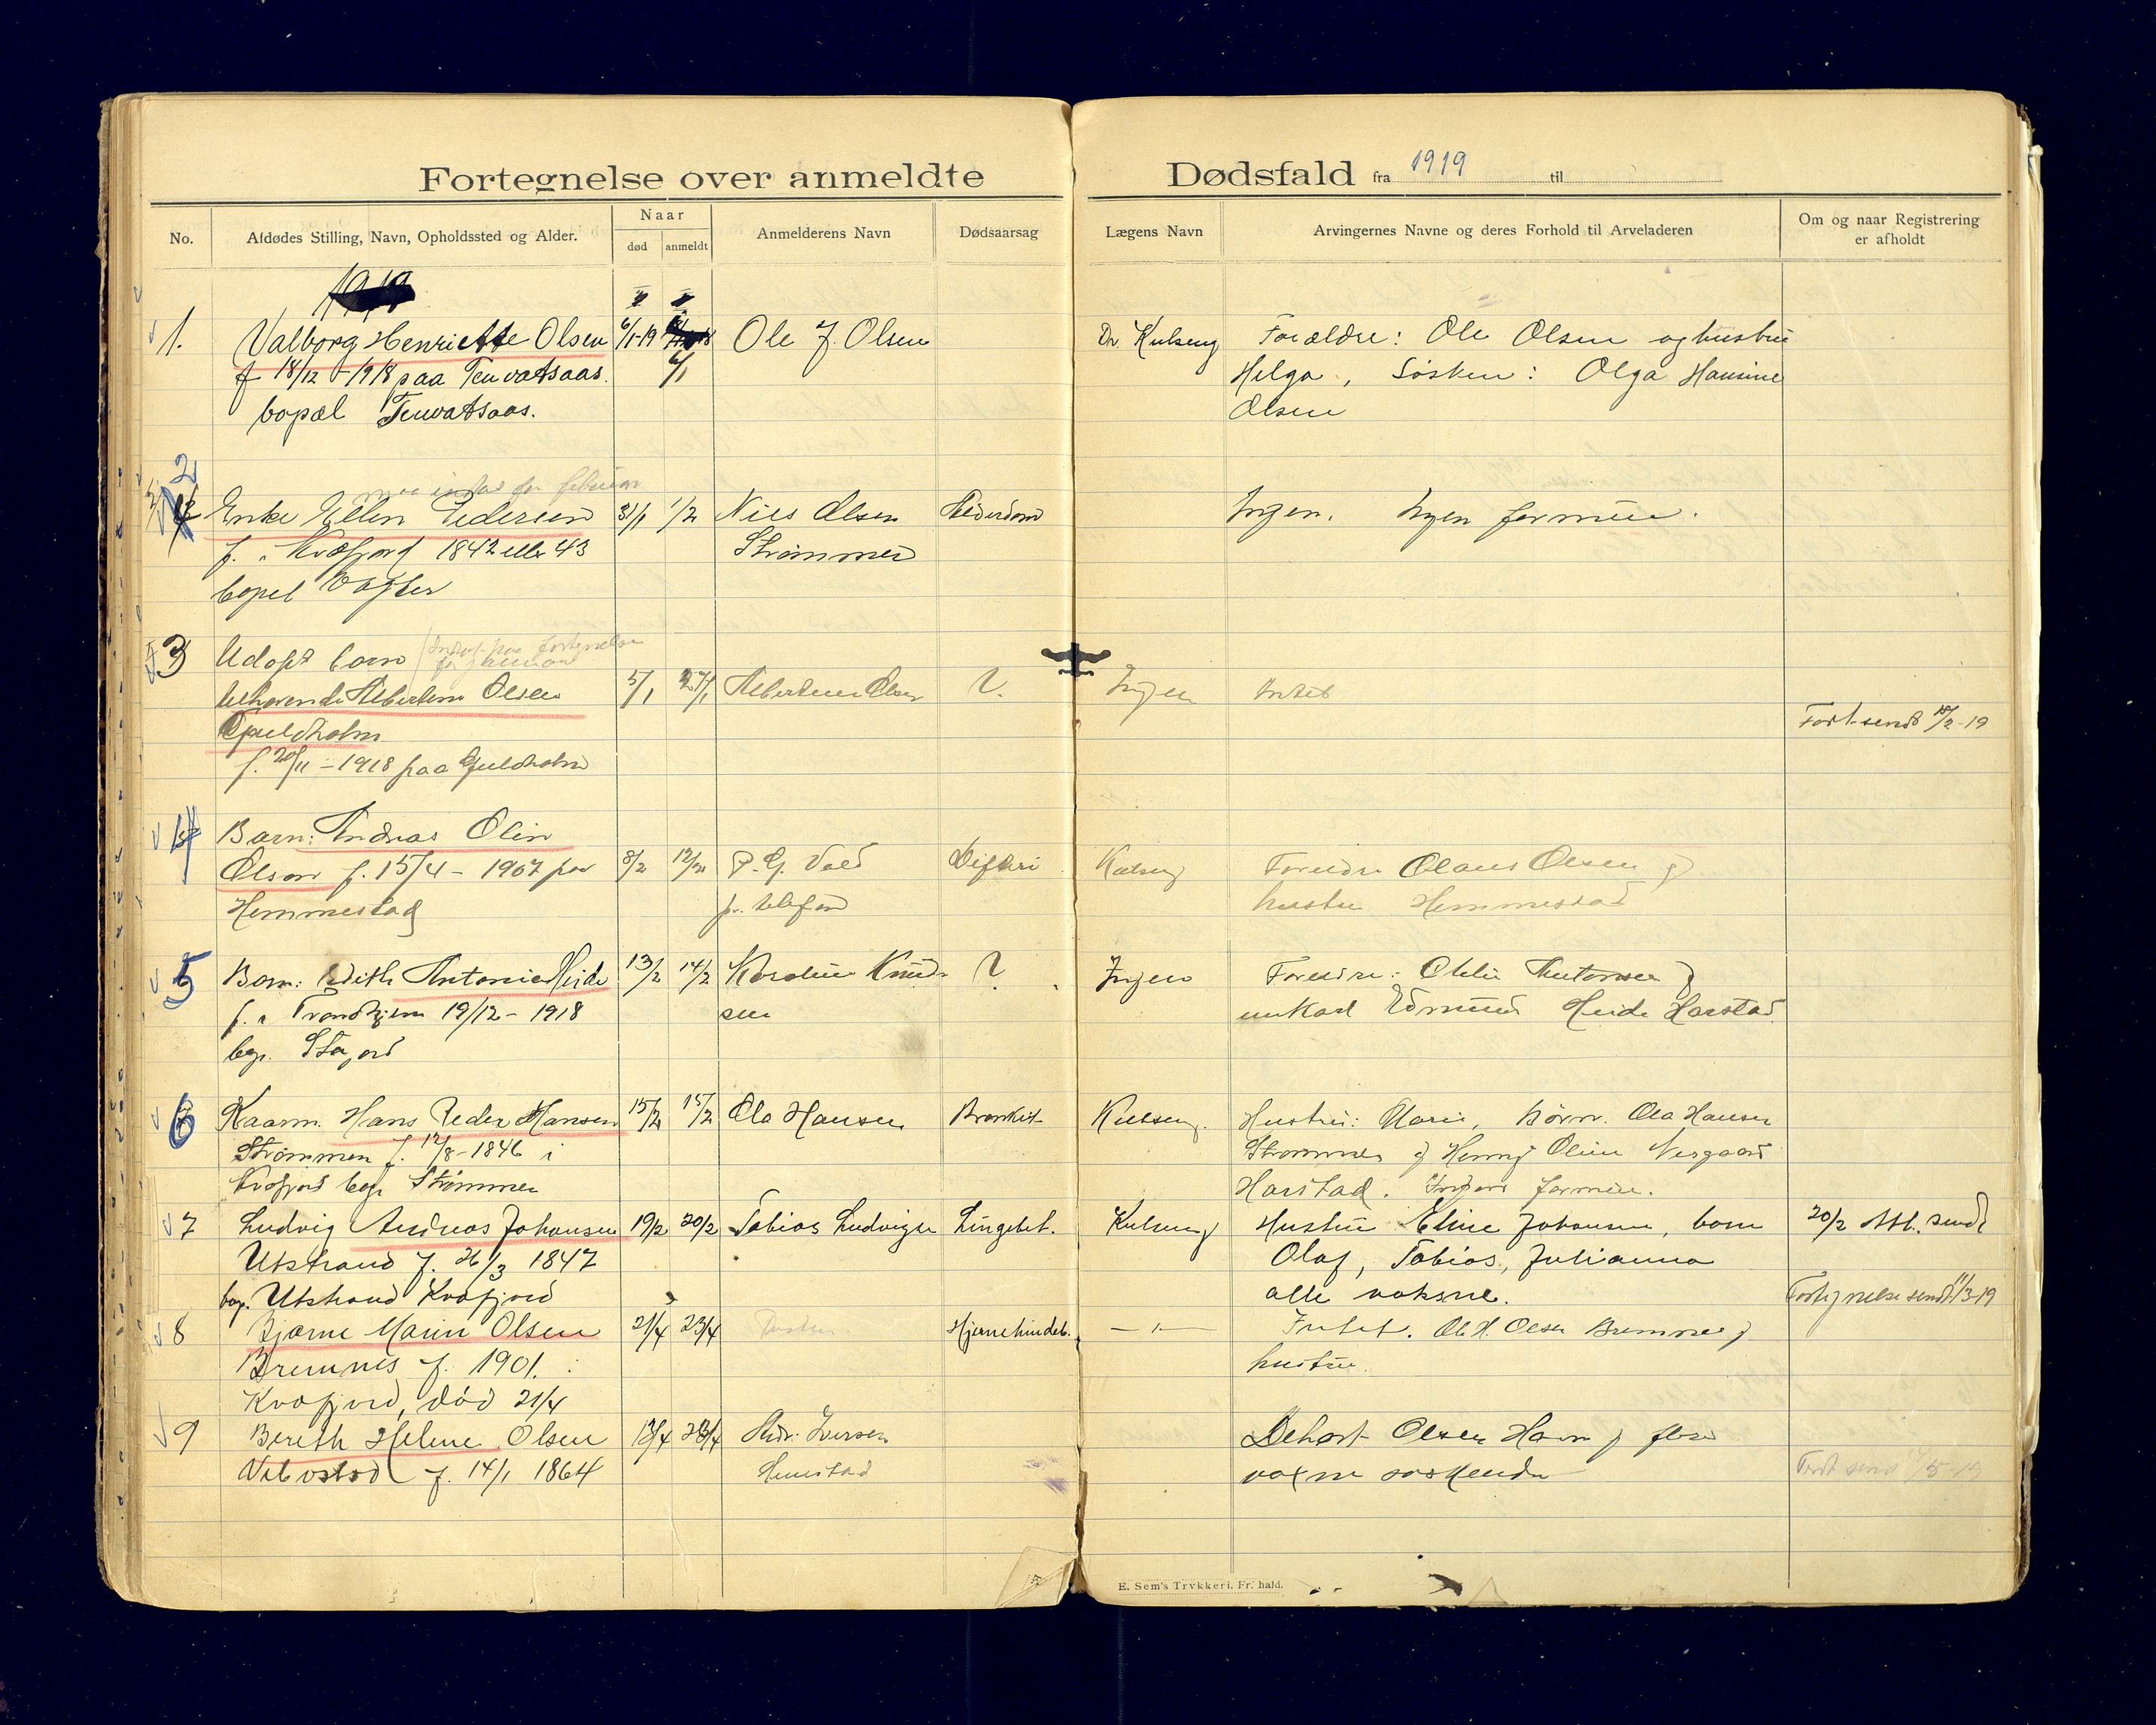 Fortegnelse over anmeldte Dødsfald fra 1919 til
No.
Afdødes Stilling, Navn, Opholdssted og Alder.
Naar
død
anmeldt
Anmelderens Navn
Dødsaarsag
Lægens Navn
Arvingernes Navne og deres Forhold til Arveladeren
Om og naar Registrering
er afholdt
1. Valborg Henriette Olsen 6/1-19 Ole J. Olsen Dr. Kulseng Forældre: Ole Olsen og hustru
f 18/12-1918 paa Tenvatsaas. 6/1 Helga, Søsken: Olga Hansine
bopæl Tenvatsaas. Olsen
2 Enke Ellen Pedersen 31/1 1/2 Nils Olsen Alderdom Ingen. Ingen formue.
f. i Kvæfjord 1842 eller 43 Strømmen
bopel
3 Udøpt barn
tilhørende Albertine Olsen 5/1 27/1 Albertine Olsen ? Ingen Intet
Guldholm Fort. sendt -19
f. 20/11-1918 paa Guldholm
4 Barn: Andreas Olin
Olsen f. 15/4-1907 paa 8/2 12/2 P. G. Difteri Kulseng Foreldre Olaus Olsen og
Hemmestad pr. telefon hustru Hemmestad
5 Barn: Edith Antonie Heide 13/2 14/2 Karoline Knud- ? Ingen Foreldre:
f. i Trondhjem 19/12-1918 sen Edmund Heide Harstad.
bop.
6 Kaarm. Hans Peder Hansen 15/2 15/2 Ola Hansen Bronkit Kulseng. Hustru: Marie, Børn: Ola Hansen
Strømmen f. 12/8-1846 i Strømmen og Oline Nergaard
Kvæfjord bop. Strømmen Harstad. Ingen formue.
7 Ludvig Andreas Johansen 19/2 20/2 Tobias Ludvigsen Lungebet. Kulseng Hustru Eline Johansen, barn 20/2 Att. sendt
Utstrand f. 26/3 1847 Olaf, Tobias, Julianna
bop. Utstrand Kvæfjord alle voksne. Fortegnelse sendt 11/3-19
8 Bjarne Marin Olsen 21/4 23/4 Hjernehindeb. —"— Intet. Ole H. Olsen Bremnes og
Bremnes f. 1901. i hustru.
Kvæfjord, død 21/4
9 Bereth Helene Olsen Andr. Iversen Olsen Havn og flere
f. 14/1 1864 Hemstad voxne søskende Fort. sendt
E. Sem's Trykkeri, Fr.hald.